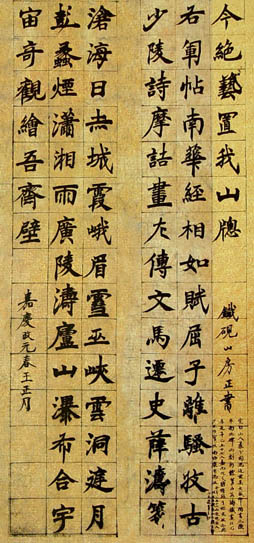 滄海日赤城霞峨眉雪巫峽雲洞庭月
彭蠡煙瀟湘雨廣陵濤廬山瀑布合宇
宙奇觀繪吾齋壁
嘉慶改元春王正月
少陵詩摩詰畫左傳文馬遷史薛濤箋
右軍帖南華經相如賦屈子離騷收古
今絕藝置我山牕
鐵硯山房正書